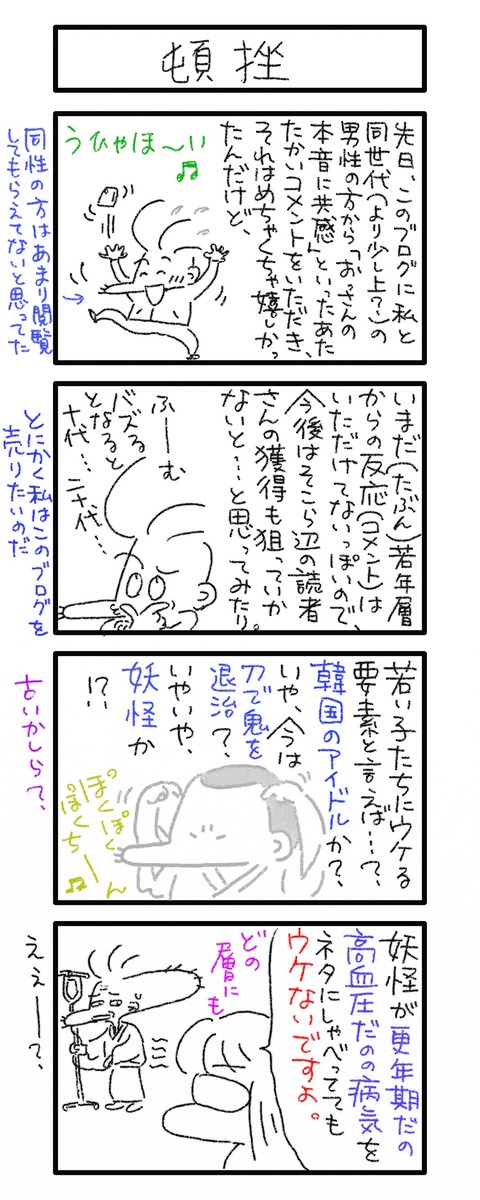 頓挫
先日、このブログに私と
同世代(より少し上?)の
男性の方から「おっさんの
本音に共感」といったあた
たかいコメントをいただき、
それはめちゃくちゃ嬉しかっ
たんだけど、
うひゃほ〜い
同性の方はあまり閲覧
してもらえてないと思ってた
いまだ(たぶん)若年層
からの反応(コメント)は
いただけてないっぽいので、
今後はそこら辺の読者
さんの獲得も狙っていか
ないと…と思ってみたり。
ふーむ
バズる
となると
十代…二十代…
とにかく私はこのブログを
売りたいのだ
若い子たちにウケる
要素と言えば…?、
韓国のアイドルか?、
いや、今は
刀で鬼を
退治?、
いやいや、
妖怪か
!?
ぽくぽく
ぽくちーん
古いかしら?、
妖怪が更年期だの
高血圧だの病気を
ネタにしゃべってても
ウケないですよ。
どの
層にも
えぇー?、